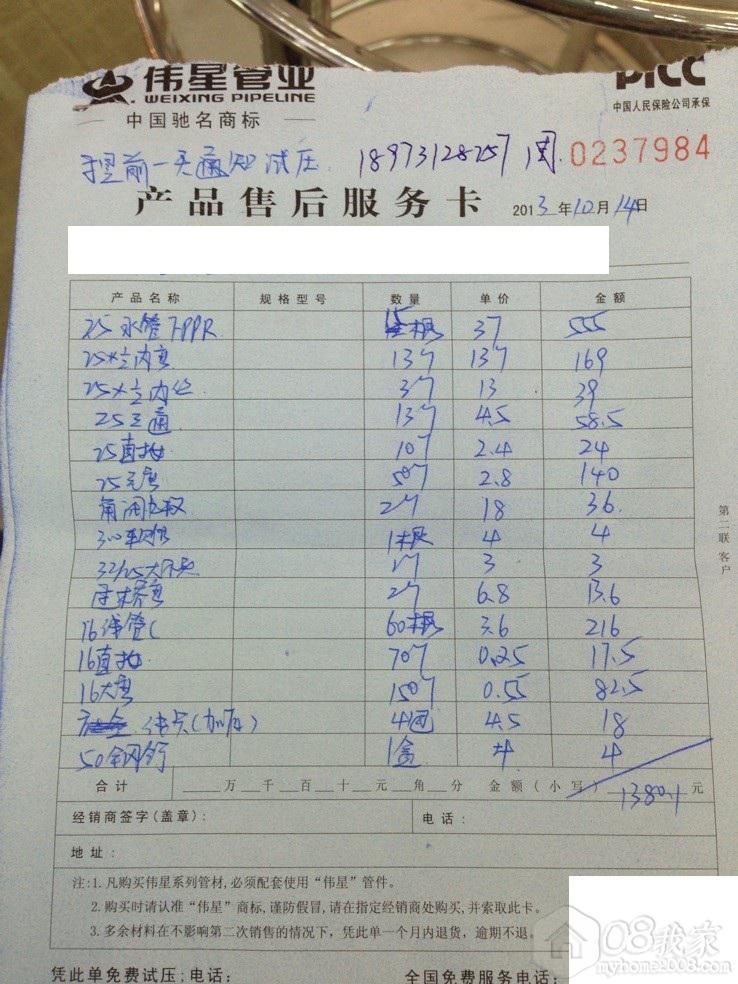 伟星管业 PICC
WEIXING PIPELINE 中国人民保险公司承保
中国驰名商标
提前一天通知试压. 18973128257 周. 0237984
产品售后服务卡 2013年10月14日
产品名称 规格型号 数量 单价 金额
25水管 PPR 15根 37 555
25×½内直 13个 13个 169
25×½内丝 3个 13 39
25三通 13个 4.5 58.5
25直接 10个 2.4 24
25弯 50个 2.8 140
角阀 2个 18 36
300软管 1根 4 4
32/25大小头 1个 3 3
过桥弯 2个 6.8 13.6
16线管C 60根 3.6 216
16直接 70个 0.25 17.5
16大弯 150个 0.55 82.5
卡(加厚) 4包 4.5 18
50钢钉 1盒 4 4
合计 万 千 百 十 元 角 分 金额(小写) 1380.1 元
经销商签字(盖章): 电话:
地址:
注:1.凡购买伟星系列管材,必须配套使用“伟星”管件。
2.购买时请认准“伟星”商标,谨防假冒,请在指定经销商处购买,并索取此卡。
3.多余材料在不影响第二次销售的情况下,凭此单一个月内退货,逾期不退。
凭此单免费试压;电话: 全国免费服务电话:
第二联 客户
08我家
myhome2008.com